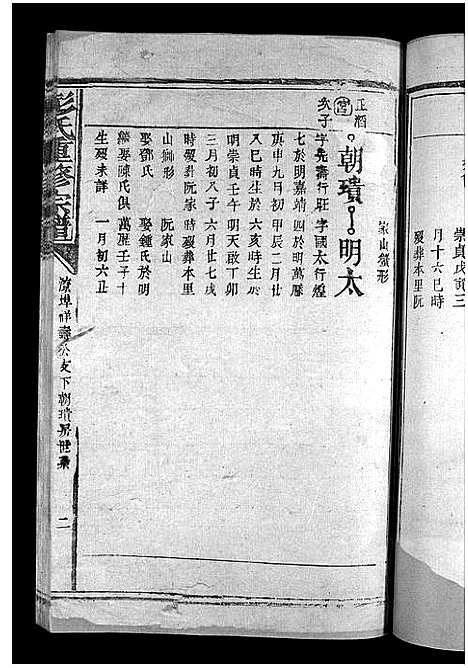 崇貞戊寅三
月十六巳時
歿葬本里阮
家山蟹形
正酒
宮
次子
朝璜 明太
字先壽行莊 字國太行煌
七於明嘉靖 四於明萬歷
庚申九月初 甲辰二月廿
八巳時生於 六亥時生於
明崇貞壬午 明天啟丁卯
三月初八子 六月廿七戌
時歿葬阮家 時歿葬本里
山獅形 阮家山
娶鄧氏 娶鍾氏於明
續娶陳氏俱 萬歷壬子十
生歿未詳 一月初六丑
彭氏重修宗譜
祥壽公支下朝璜房世系
二